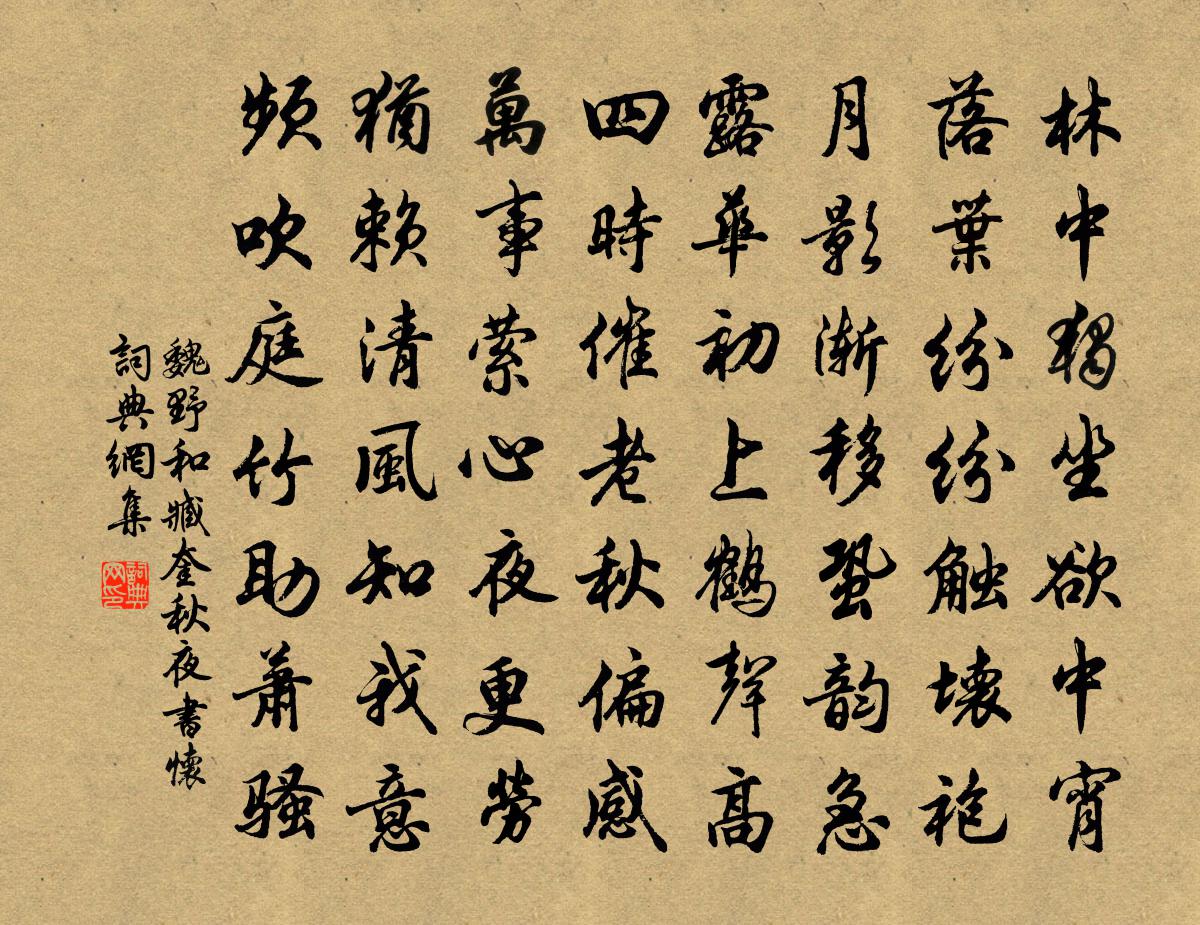 林中獨坐欲中宵
落葉紛紛觸壞袍
月影漸移蛩韵急
露華初上鶴聲高
四時催老秋偏感
萬事縈心夜更勞
猶賴清風知我意
頻吹庭竹助蕭騷
魏野和臧奎秋夜書懷
詞典網集
詞典网印